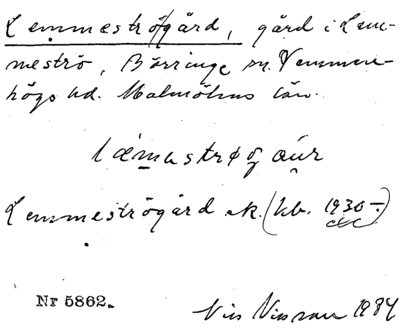 Lemmeströgård, gård i Lem-
meströ, Börringe sn. Vemmen-
högs hd. Malmöhus län.
Lemmeströgård ek. (kb. 1930-)
Nr 5862.
Nils Nilsson 1984